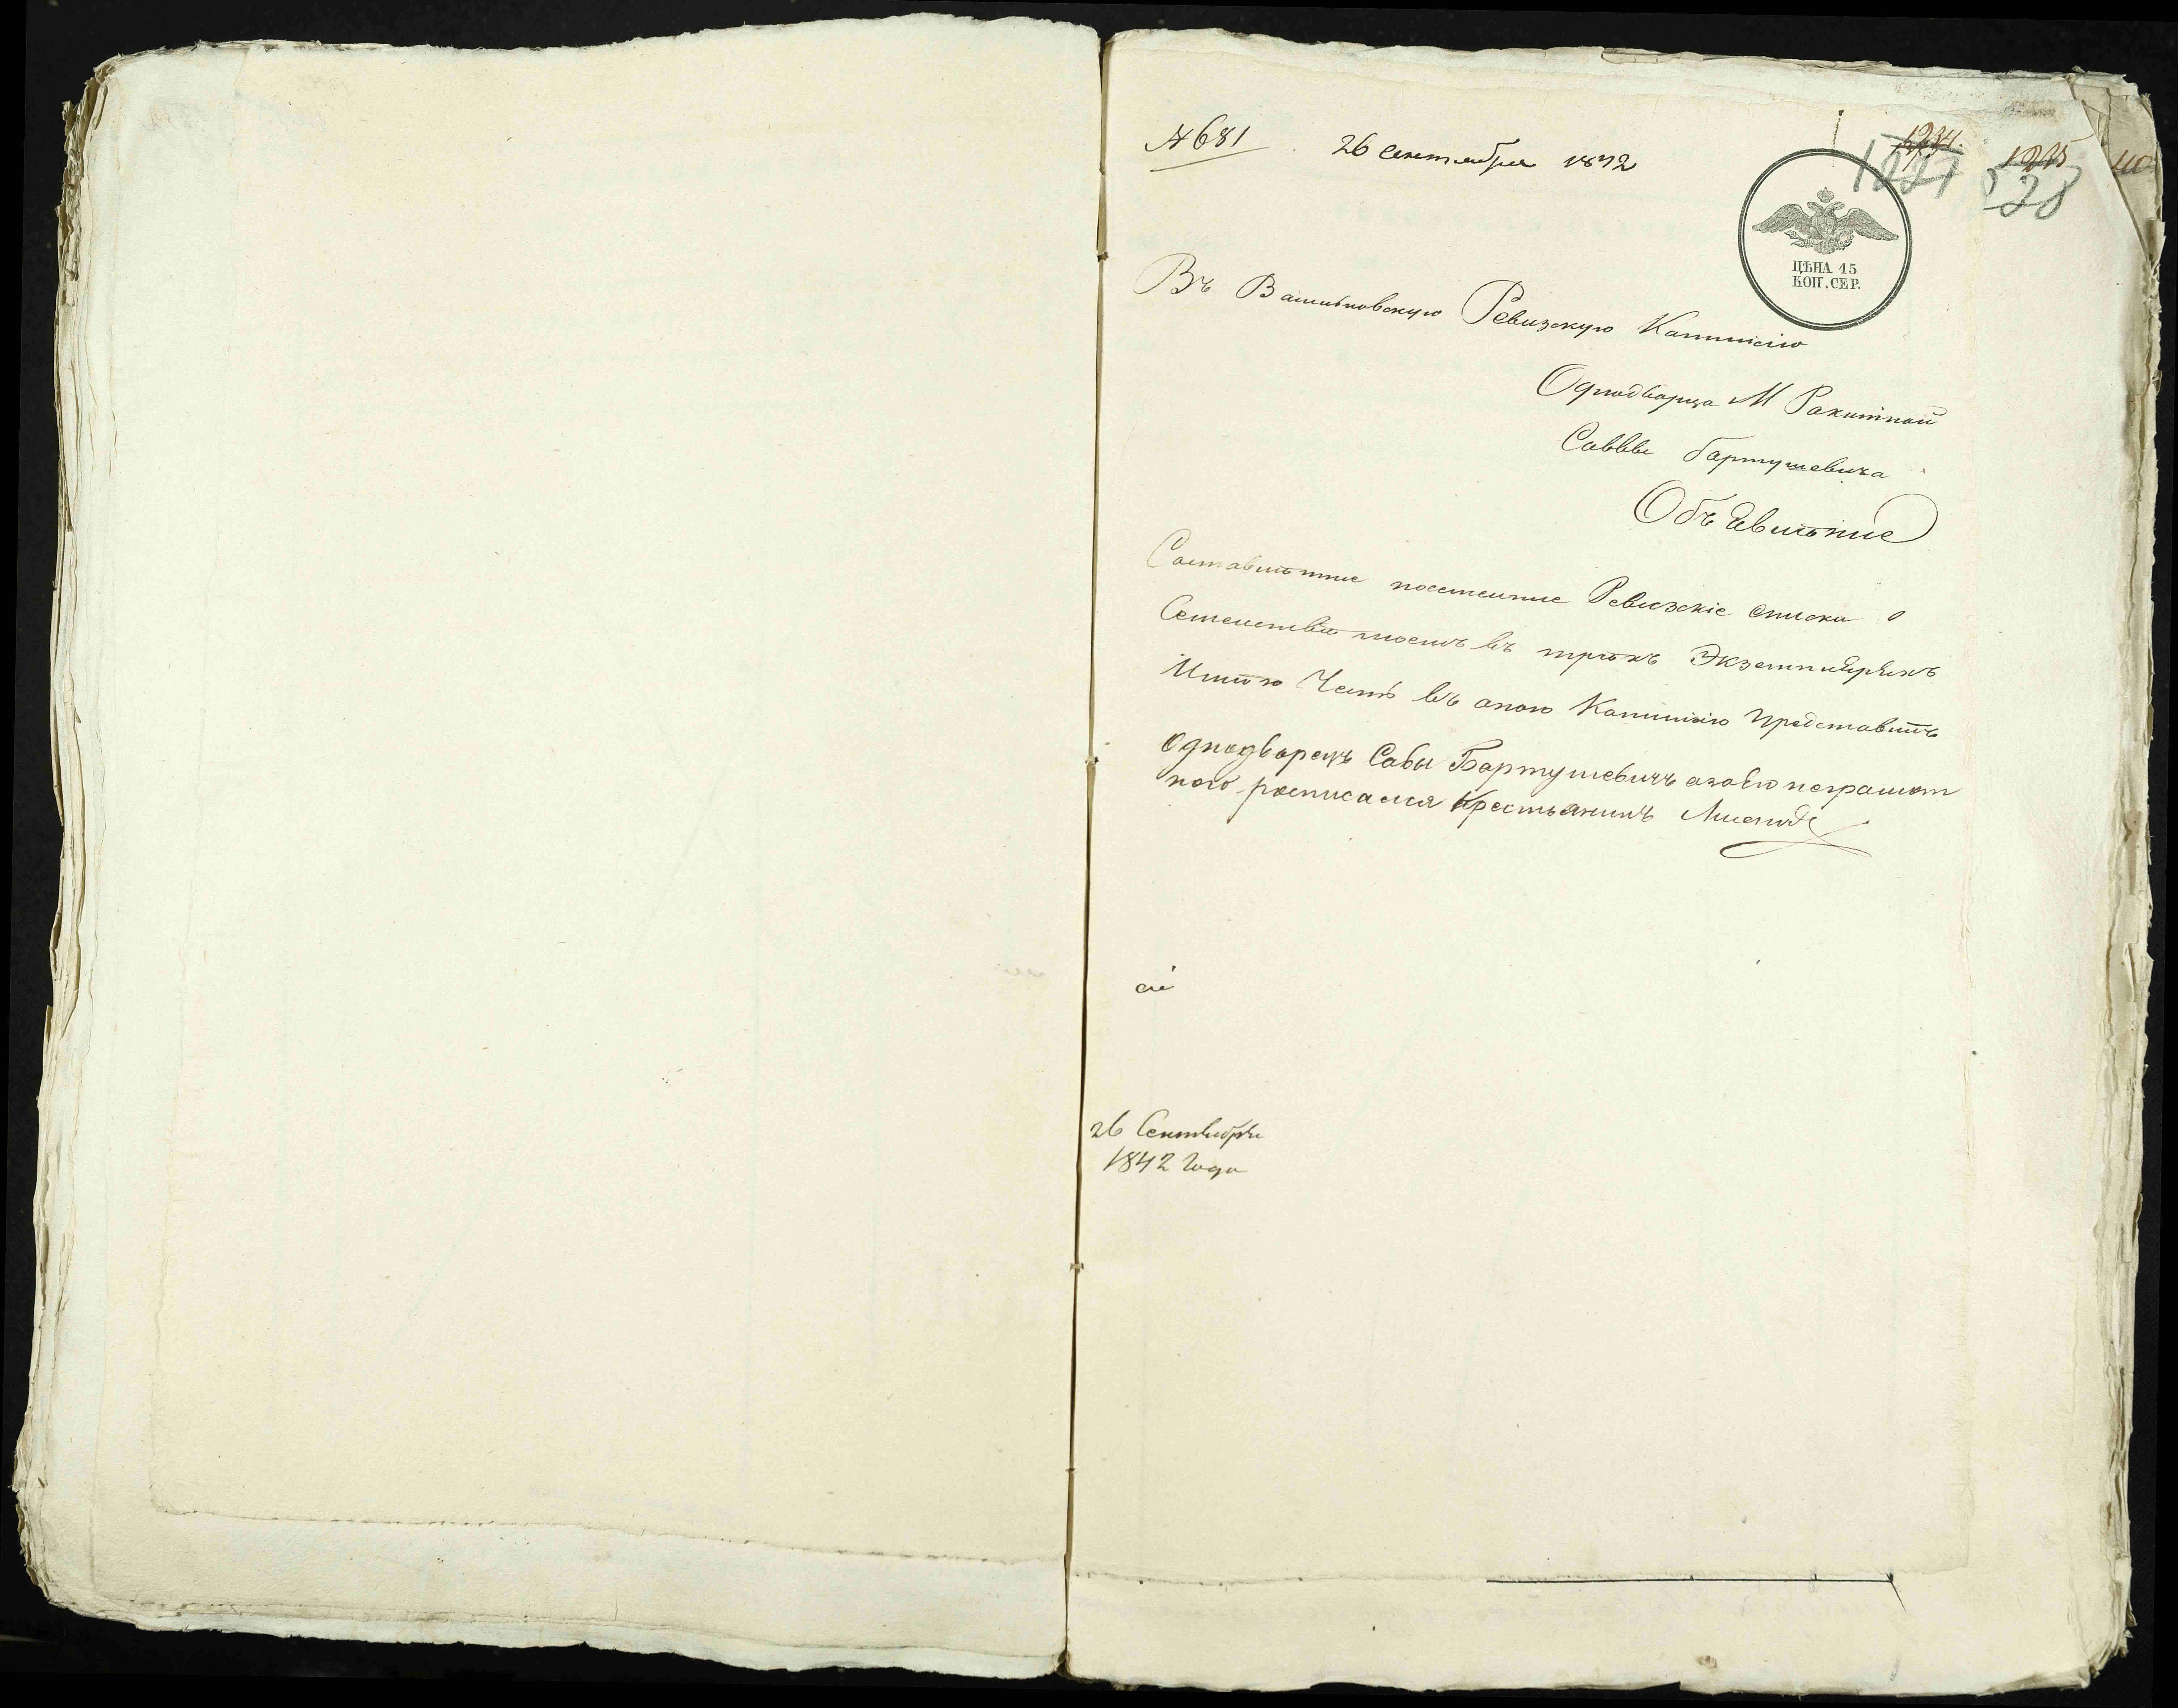 № 681
26 Сентября 1842
1234.
1235
1227
228
ЦѢНА 15
КОП. СЕР.
Въ Васильковскую Ревизскую Коммисію
Однодворца М Ракитной
Саввы Бартушевича
Объявленіе
Составленные посемейные Ревизскіе списки о
Семействе моемъ въ трехъ Экземплярахъ
Имею Честь въ оною Коммисію Представить
Однодворецъ Савы Бартушевичъ а за его неграмот
ного росписался Крестьянинъ
26 Сентября
1842 Года